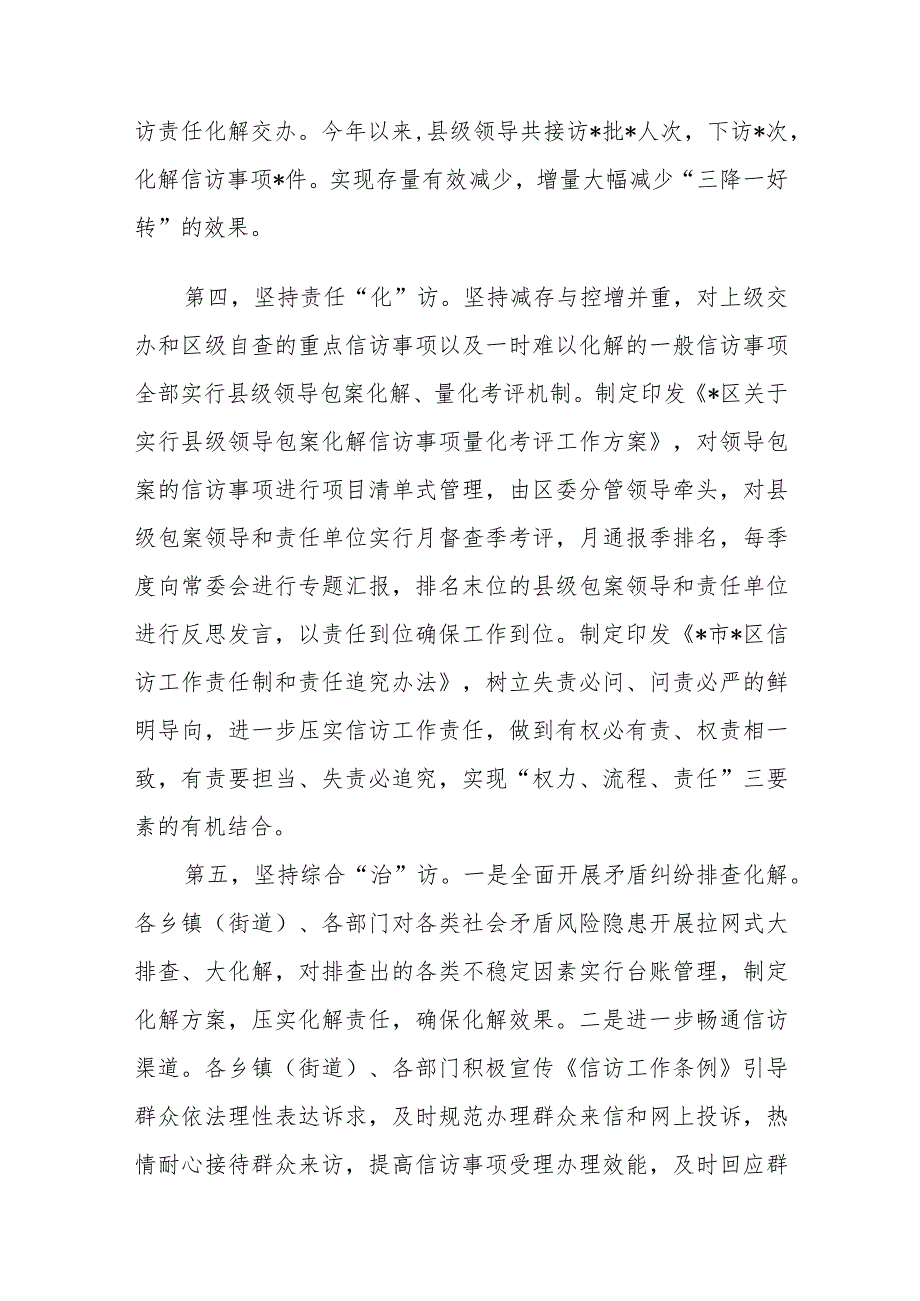 访责任化解交办。今年以来,县级领导共接访*批*人次，下访*次，
化解信访事项*件。实现存量有效减少，增量大幅减少“三降一好
转”的效果。
第四，坚持责任“化”访。坚持减存与控增并重，对上级交
办和区级自查的重点信访事项以及一时难以化解的一般信访事项
全部实行县级领导包案化解、量化考评机制。制定印发《*区关于
实行县级领导包案化解信访事项量化考评工作方案》，对领导包
案的信访事项进行项目清单式管理，由区委分管领导牵头，对县
级包案领导和责任单位实行月督查季考评，月通报季排名，每季
度向常委会进行专题汇报，排名末位的县级包案领导和责任单位
进行反思发言，以责任到位确保工作到位。制定印发《*市*区信
访工作责任制和责任追究办法》，树立失责必问、问责必严的鲜
明导向，进一步压实信访工作责任，做到有权必有责、权责相一
致，有责要担当、失责必追究，实现“权力、流程、责任”三要
素的有机结合。
第五，坚持综合“治”访。一是全面开展矛盾纠纷排查化解。
各乡镇（街道）、各部门对各类社会矛盾风险隐患开展拉网式大
排查、大化解，对排查出的各类不稳定因素实行台账管理，制定
化解方案，压实化解责任，确保化解效果。二是进一步畅通信访
渠道。各乡镇（街道）、各部门积极宣传《信访工作条例》引导
群众依法理性表达诉求，及时规范办理群众来信和网上投诉，热
情耐心接待群众来访，提高信访事项受理办理效能，及时回应群